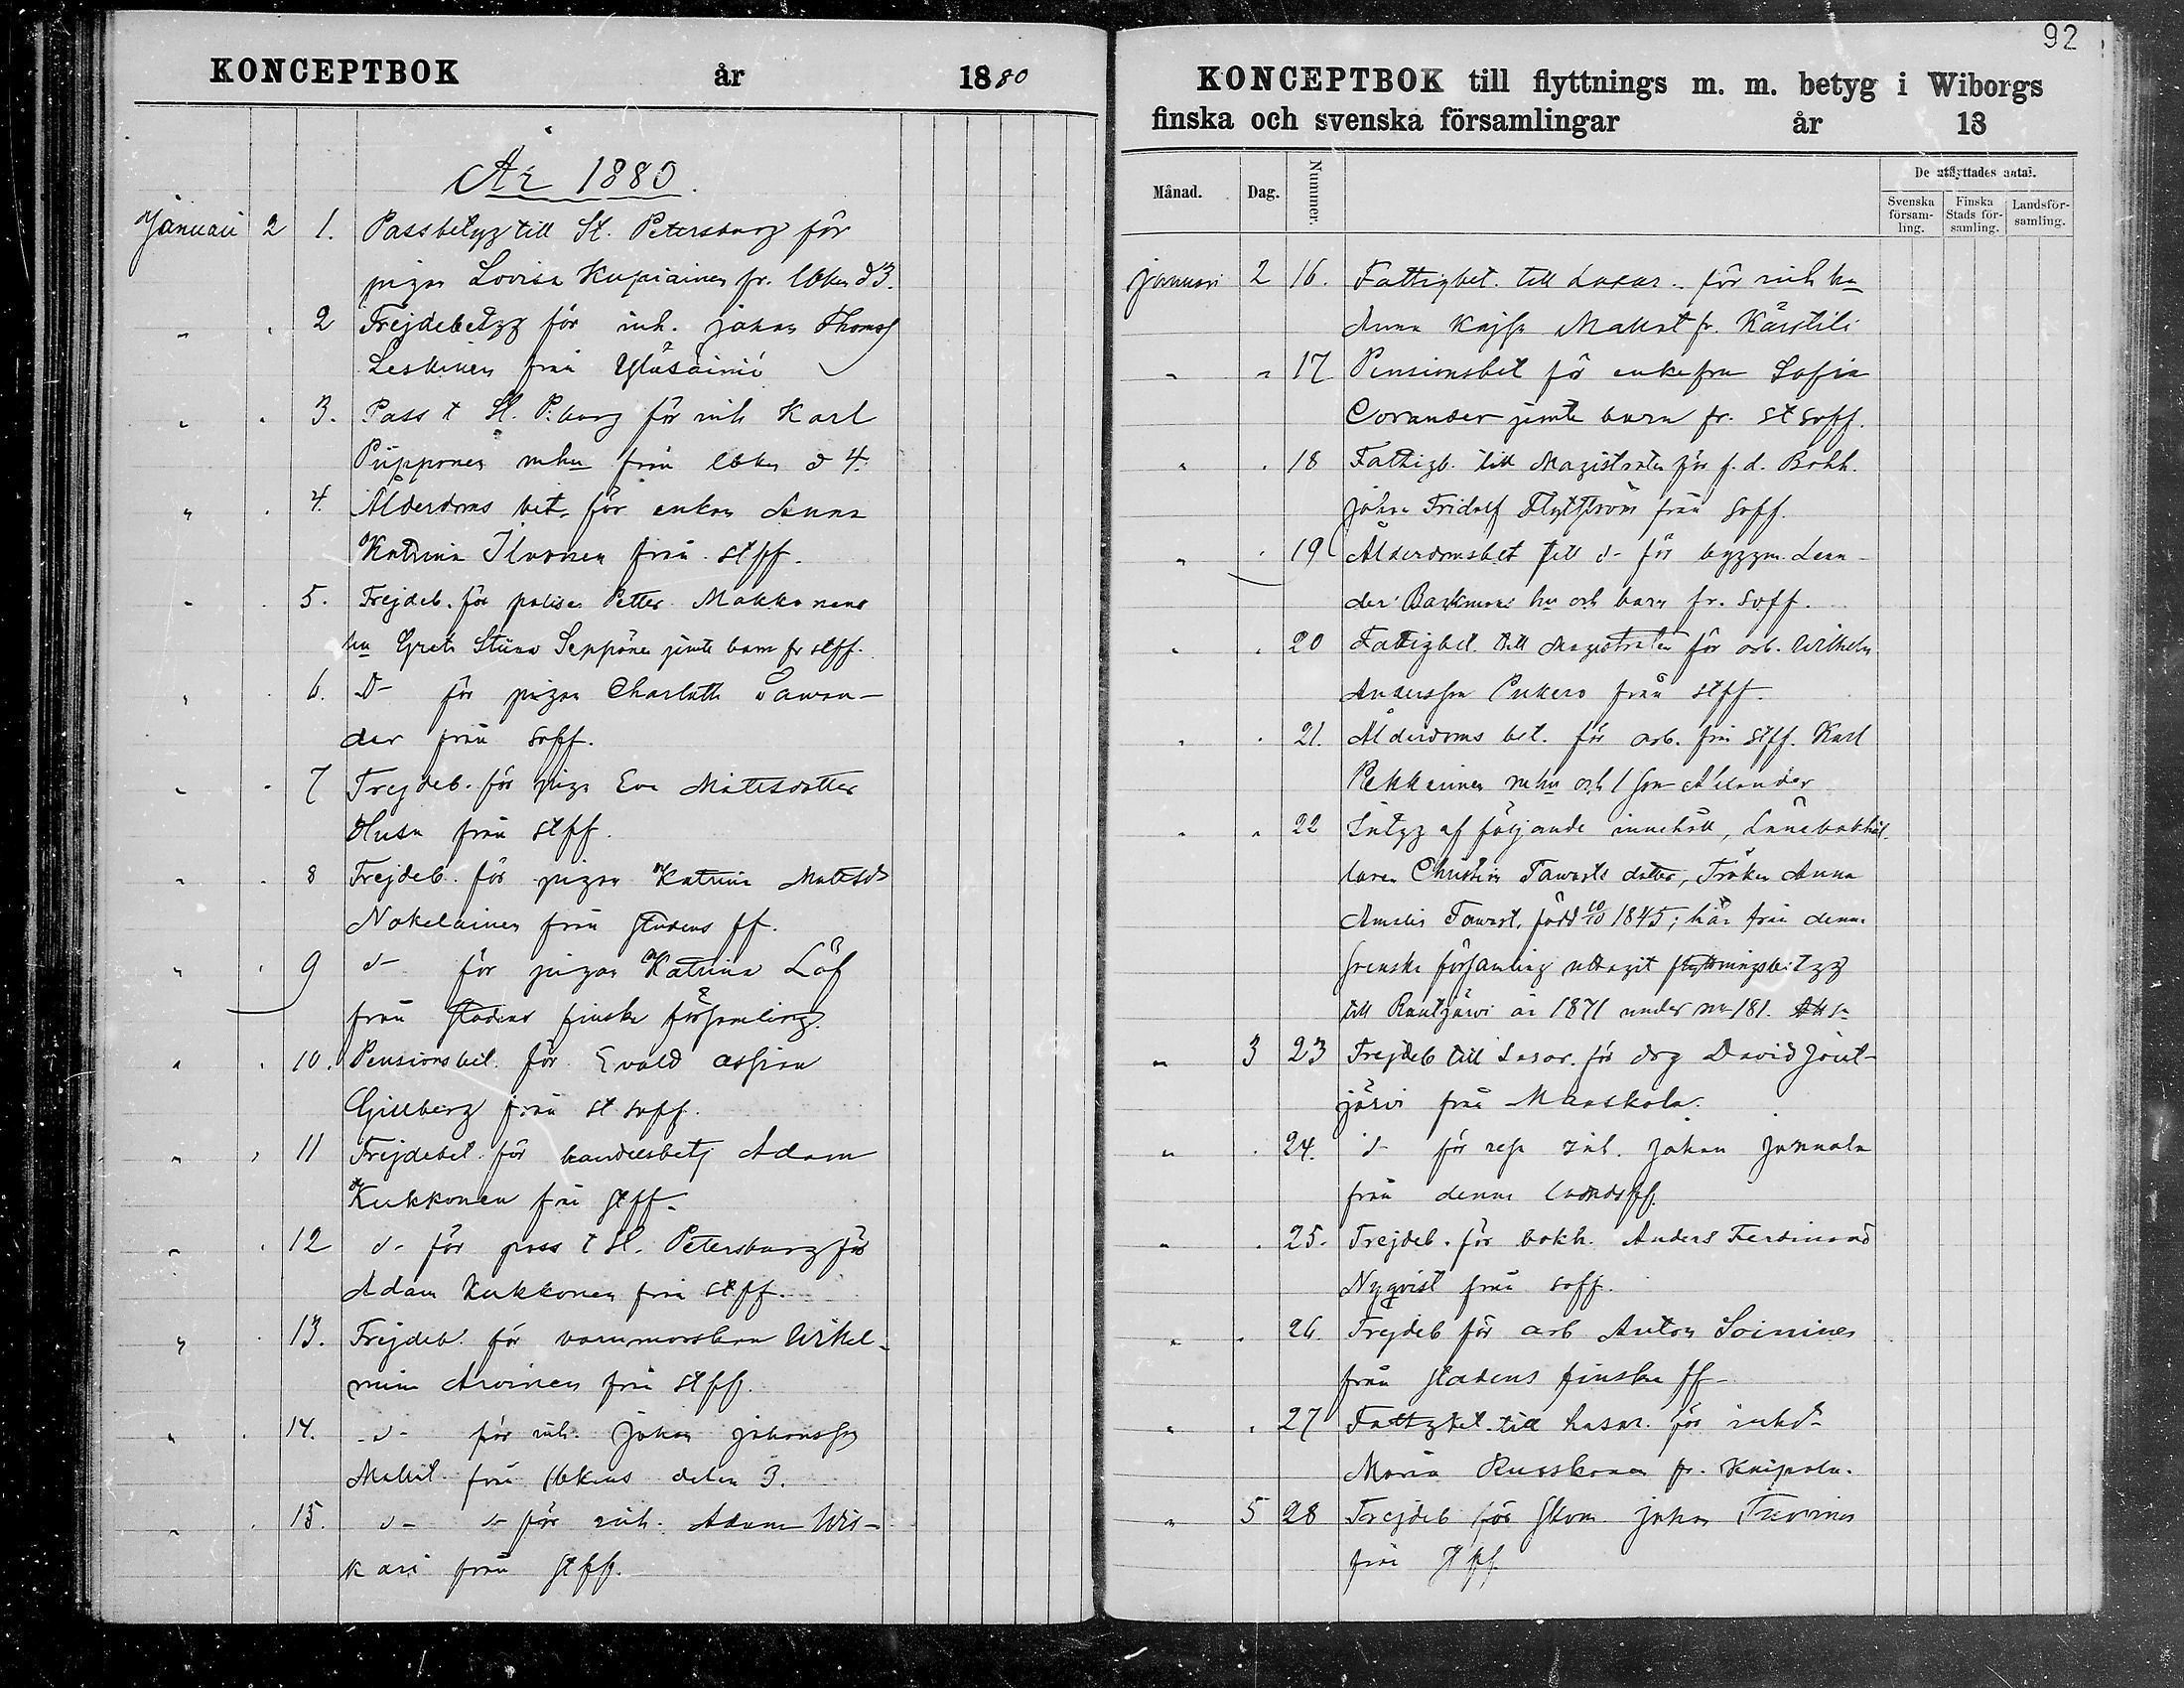 KONCEPTBOK år 1880
År 1880.
Januari 2 1. Passbetyg till St. Petersburg för
pigan Lovisa Kupiainen fr. lbken d 3.
" . 2 Frejdebetyg för inh. Johan Thomas
Leskinen från Yläsäiniö
" . 3. Pass t St. P:burg för inh Karl
Pipponen mhu från lbken d 4.
" . 4. Ålderdoms bet. för enkan Anna
Katrina Ilvonen från stff.
" . 5. Frejdeb. för polisen Petter Makkonens
hu Greta Stina Seppönen jemte barn fr stff.
" . 6. D- för pigan Charlotta Tawan-
der från soff.
" . 7 Frejdeb. för piga Eva Mattsdotter
Husu från stff.
" . 8 Frejdeb. för pigan Katrina Mattsd
Nokelainen från stadens ff.
" . 9 d- för pigan Katrina Löf
från stadens finska församling.
" . 10. Pensionsbet. för Evald
Gillberg från st soff.
" . 11 Frejdebet. för handelsbetj Adam
Kukkonen frå stff.
" . 12 d- för pass t St. Petersburg för
Adam Kukkonen från stff.
" . 13. Frejdeb. för barnmorskan Wilhel-
mina Arvinen frå stff.
" . 14. -d- för inh. Johan Johansson
Mallat från lbkens delen 3.
" . 15. d- d- för inh. Adam Wis-
kari från stff.
92
KONCEPTBOK till flyttnings m. m. betyg i Wiborgs
finska och svenska församlingar år 18
Månad. Dag. Nummer. De utflyttades antal.
Svenska församling. Finska Stads församling. Landsförsamling.
Januari 2 16. Fattigbet. till Lasar. för inh hu
Anna Kajsa Mallat fr. Kärstilä
" " 17 Pensionsbet för enkefru Sofia
Corander jemte barn fr. st soff.
" . 18 Fattigb. till Magistraten för f. d. Bokh.
Johan Fridolf Flytström från soff.
" . 19 Ålderdomsbet till d- för byggm. Lean-
der Backmans hu och barn fr. soff.
" . 20 Fattigbet. till Magistraten för arb. Wilhelm
Andersson Pukero från stff
" . 21. Ålderdoms bet. för arb. frå stff. Karl
Pekkainen mhu och 1 son Alexander
" " 22 Intyg af följande innehåll, Länebokhål-
laren Christian Tawasts dotter, Fröken Anna
Amalia Tawast, född 10/10 1845; här från denna
svenska församling uttagit flyttningsbetyg
till Rautjärvi år 1871 under no 181.
" 3 23 Frejdeb till Lasar. för drg David Jout-
järvi från Maaskola.
" . 24. d- för inh. Johan Junnola
från denna landsff.
" . 25. Frejdeb. för bokh. Anders Ferdinand
Nyqvist från soff.
" . 26. Frejdeb för arb Anton Soininen
från stadens finska ff
" . 27 Fattigbet. till Lasar. för inhd-
Maria Ruuskanen fr. Kaipola.
" 5 28 Frejdeb för skom. Johan Toivonen
från stff